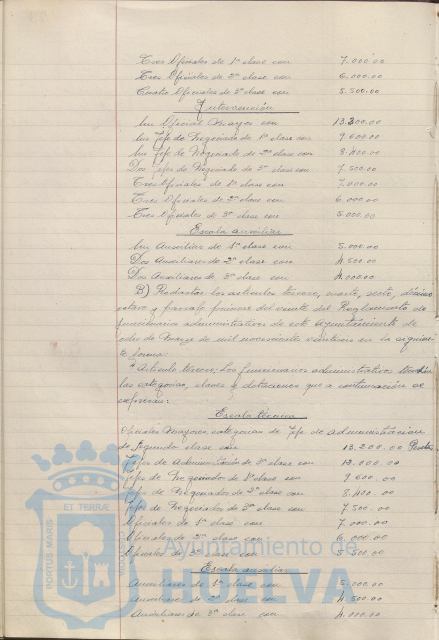 Tres Oficiales de 1ª clase con 7.000'00
Tres Oficiales de 2ª clase con 6.000.00
Cuatro Oficiales de 3ª clase con 5.500.00
Intervención
Un Oficial Mayor con 13.200.00
Un Jefe de Negociado de 1ª clase con 9.600.00
Un Jefe de Negociado de 2ª clase con 8.400.00
Dos Jefes de Negociado de 3ª clase con 7.500.00
Tres Oficiales de 1ª clase con 7.000.00
Tres Oficiales de 2ª clase con 6.000.00
Tres Oficiales de 3ª clase con 5.000.00
Escala auxiliar
Un Auxiliar de 1ª clase con 5.000.00
Dos Auxiliares de 2ª clase con 4.500.00
Dos Auxiliares de 3ª clase con 4.000.00
B) Redactar los artículos tercero, cuarto, sexto, décimo
octavo y párrafo primero del veinte del Reglamento de
funcionarios administrativos de este Ayuntamiento de
de Marzo de mil novecientos en la siguien-
te forma:
"Artículo tercero: Los funcionarios administrativos tendrán
las categorías, clases y dotaciones que a continuación se
expresan:
Escala técnica
Oficiales Mayores, categorías de Jefe de administración
de segunda clase con 13.200.00 Pesetas
Jefes de Administración de 3ª clase con 12.000.00
Jefes de Negociado de 1ª clase con 9.600.00
Jefes de Negociados de 2ª clase con 8.400.00
Jefes de Negociados de 3ª clase con 7.500.00
Oficiales de 1ª clase con 7.000.00
Oficiales de 2ª clase con 6.000.00
Oficiales de 3ª clase con 5.500.00
Escala auxiliar
Auxiliares de 1ª clase con 5.000.00
Auxiliares de 2ª clase con 4.500.00
Auxiliares de 3ª clase con 4.000.00
ET TERRÆ
PORTUS MARIS
CUSTODIA
Ayuntamiento de
HUELVA